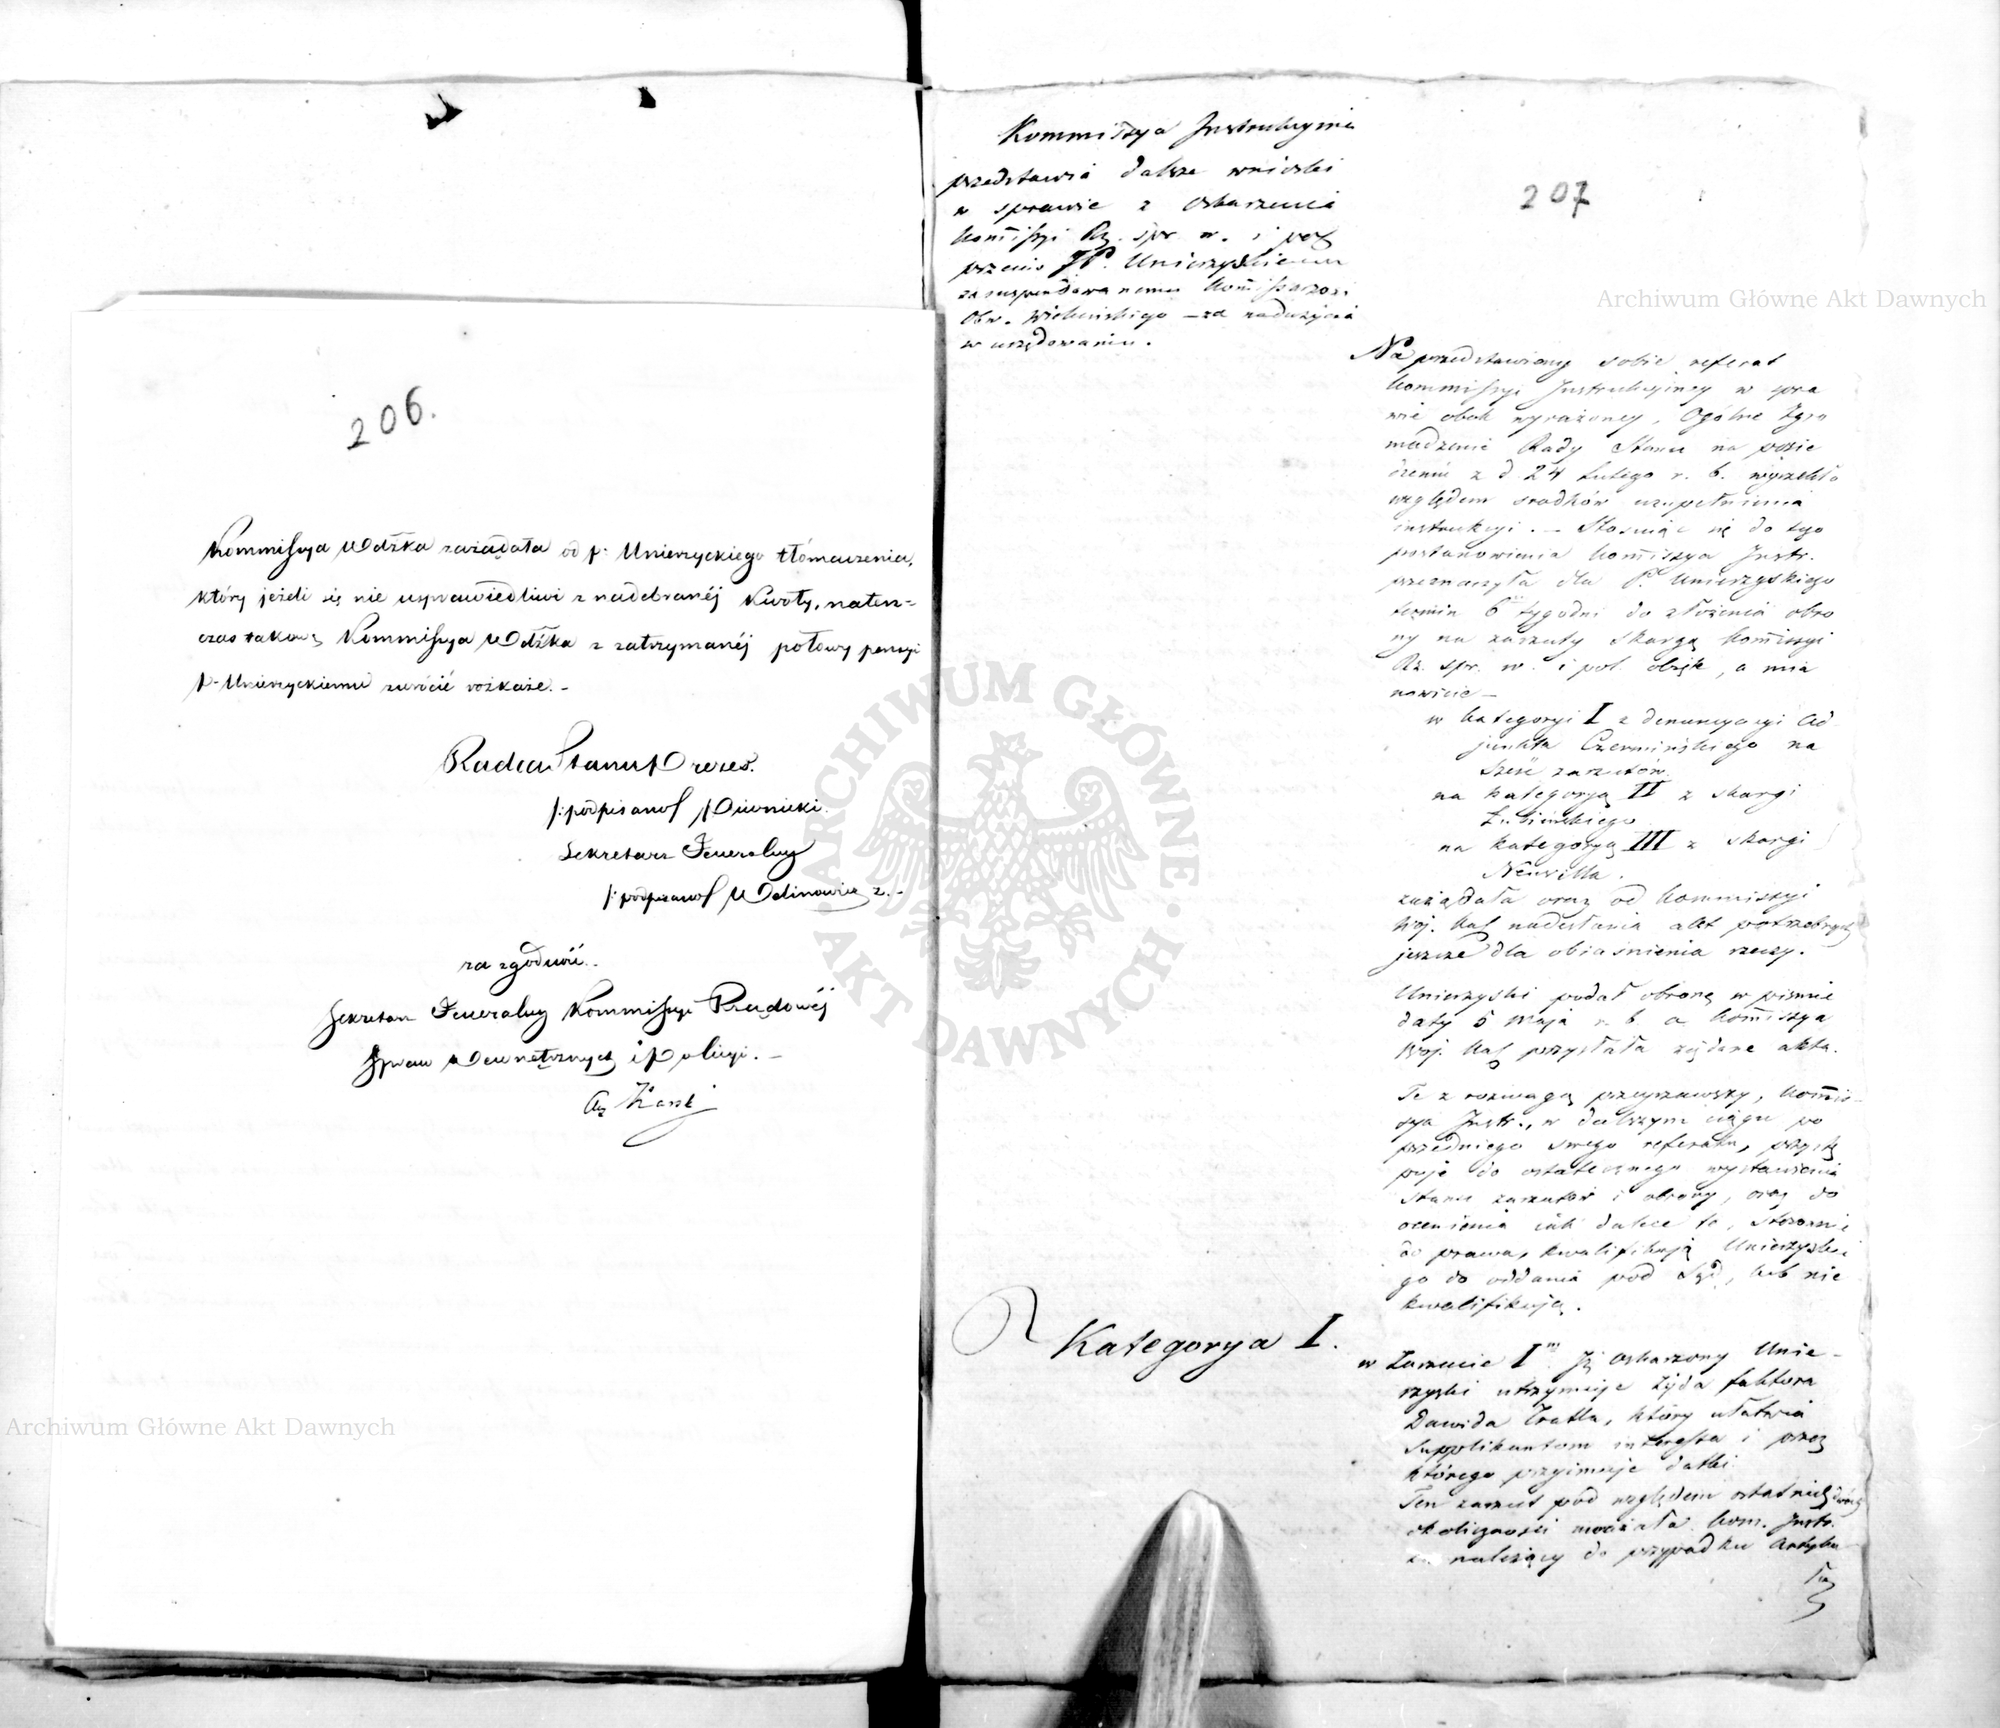 206.
Kommissya Wdzka zażądała od p. Unierzyckiego tłómaczenia,
który jeżeli się nie usprawiedliwi z nadebranéj kwoty, naten=
czas takową Kommissya Wdzka z zatrzymanéj połowy pensyi
p. Unierzyckiemu zwrócić rozkaże.-
Radca Stanu Prezes.
/:podpisano/ Piwnicki.
Sekretarz Jeneralny
/:podpisano/
za zgodność.
Sekretarz Jeneralny Kommissyi Rządowéj
Spraw Wewnętrznych i Policyi.-
207
Kommissya Instrukcyina
przedstawia dalsze wnioski
w sprawie z oskarżenia
Kommissyi Rz. spr. w. i pol
przeciw JP. Unierzyskiemu
zasuspendowanemu Kommissarzowi
Obw. Wieluńskiego - za nadużycia
w urzędowaniu.
Na przedstawiony sobie referat
Kommissyi Instrukcyiney w spra
wie obok wyrażoney, Ogólne Zgro
madzenie Rady Stanu na posie
dzeniu z d 24 Lutego r. b. wyrzekło
względem srodków uzupełnienia
instrukcyi. - Stosuiąc się do tego
postanowienia Kommissya Instr.
przeznaczyła dla P. Unierzyskiego
termin 6 tygodni do złożenia obro
ny na zarzuty skargą Kommissyi
Rz. spr. w. i pol. objęte, a mia
nowicie -
w kategoryi I z denuncyacyi Ad-
junkta Czermińskiego na
sześć zarzutów.
na kategoryą II z skargi
na kategoryą III z skargi
Neuvilla.
zażądała oraz od Kommissyi
Woj. Kal nadesłania akt potrzebnych
jeszcze dla obiasnienia rzeczy.
Unierzyski podał obronę w pismie
daty 5 Maja r. b. a Kommissya
Woj. Kal przysłała żądane akta.
Te z rozwagą przeyrzawszy, Kommis-
sya Instr., w dalszym ciągu po
przedniego swego referatu, przystę
puje do ostatecznego wystawienia
stanu zarzutów i obrony, oraz do
ocenienia iak dalece te, stosownie
do prawa, kwalifikują Unierzyskie
go do oddania pod Sąd, lub nie
kwalifikują.
Kategorya I.
w Zarzucie I<sup>m</sup> Iż oskarzony Unie-
rzyski utrzymuje żyda faktora
Dawida Tratla, który ułatwia
supplikantom interessa i przez
którego przyimuje datki.
Ten zarzut pod względem ostatniéy
okoliczności uważała Kom. Instr.
za należący do przypadku artyku-
łu